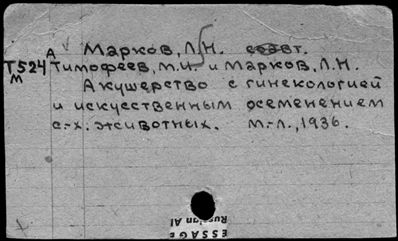 А Марков, Л.Н. соавт.
Т524 Тимофеев, М.И. и Марков, Л.Н.
М Акушерство с гинекологией
и искусственным осеменением
с.-х. животных. М.-Л., 1936.
Russian Al
ESSAGE